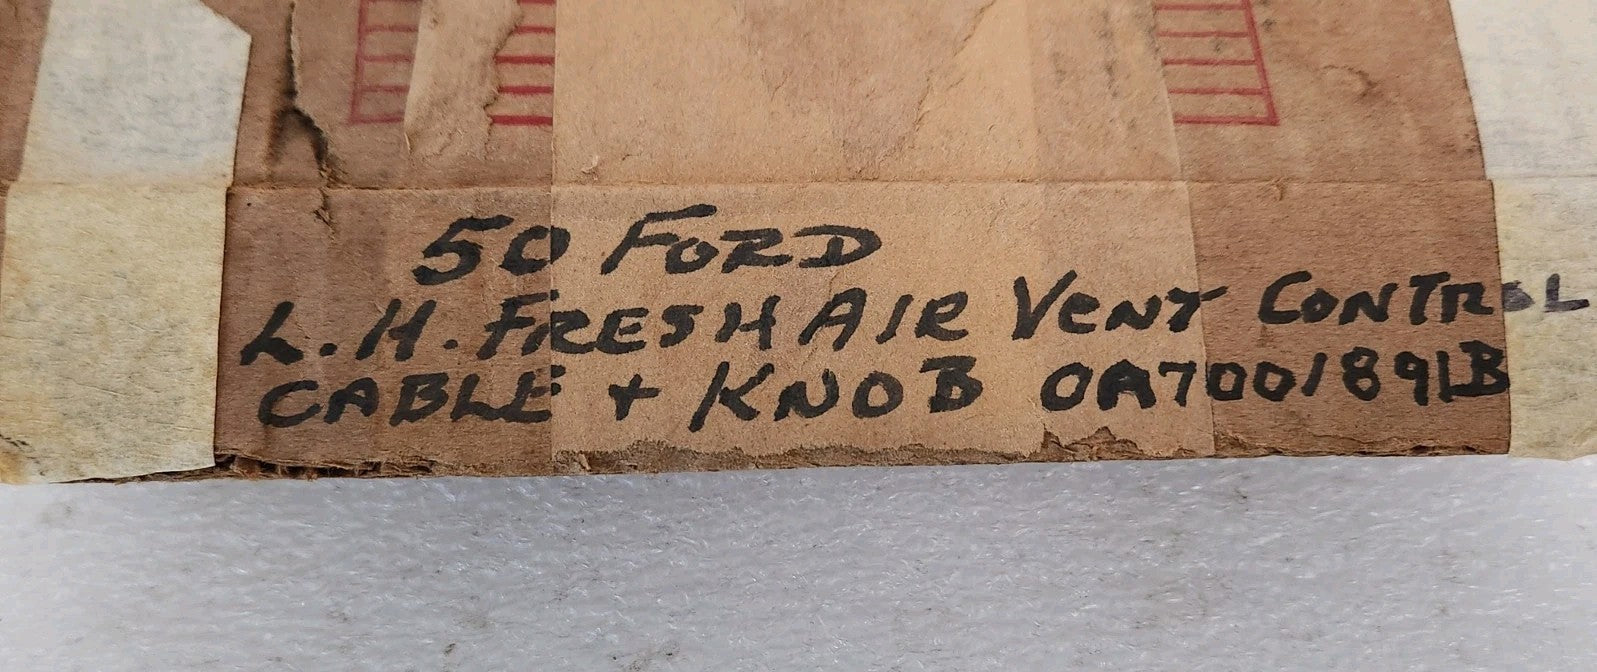 50 FORD
L.H. FRESH AIR VENT CONTROL
CABLE + KNOB OA7001891B